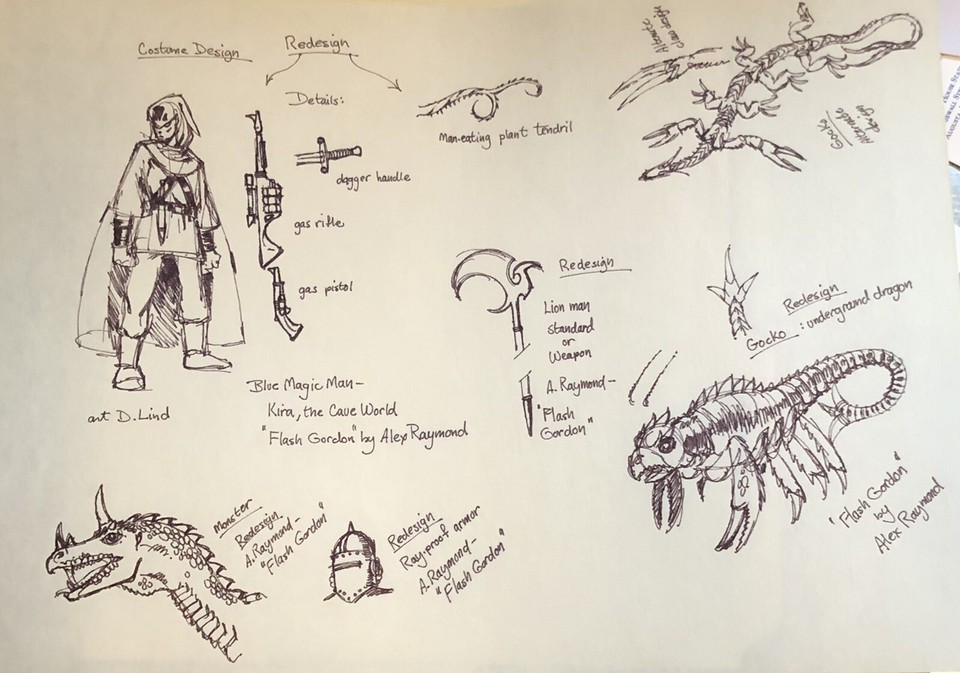 Costume Design
Redesign
Details:
dagger handle
gas rifle
gas pistol
Man-eating plant tendril
Alternate
claw design
Gocko
Alternate
design
Redesign
Lion man
standard
or
Weapon
A. Raymond-
"Flash
Gordon"
Redesign
Gocko : underground dragon
"Flash Gordon"
by
Alex Raymond
Blue Magic Man-
Kira, the Cave World
"Flash Gordon" by Alex Raymond
art D. Lind
Monster
Redesign
A. Raymond-
"Flash Gordon"
Redesign
Ray-proof armor
A. Raymond-
"Flash Gordon"